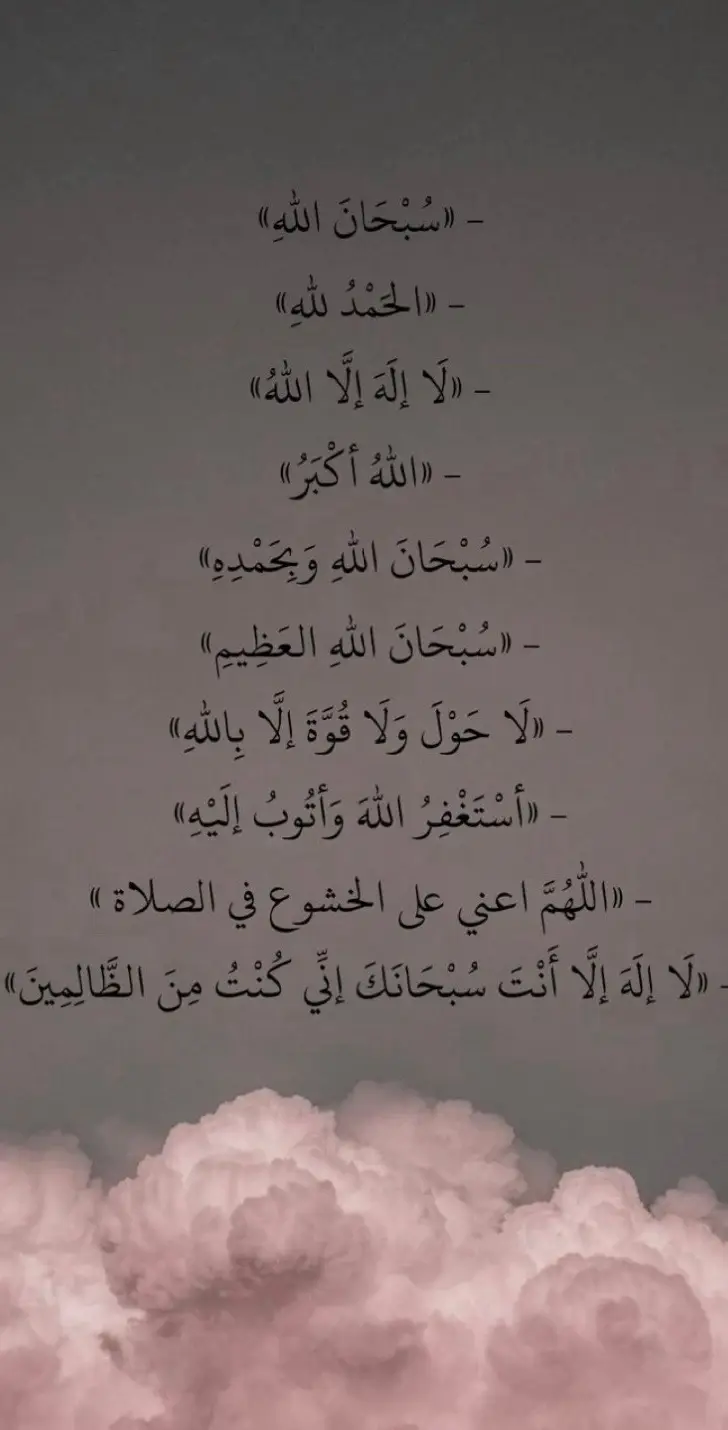 – «سُبْحَانَ اللهِ»
– «الحَمْدُ للهِ»
– «لَا إلَهَ إلَّا اللهُ»
– «اللهُ أكْبَرُ»
– «سُبْحَانَ اللهِ وَبِحَمْدِهِ»
– «سُبْحَانَ اللهِ العَظِيمِ»
– «لَا حَوْلَ وَلَا قُوَّةَ إلَّا بِاللهِ»
– «أسْتَغْفِرُ اللهَ وَأتُوبُ إلَيْهِ»
– «اللَّهُمَّ اعني على الخشوع في الصلاة »
- «لَا إلَهَ إلَّا أَنْتَ سُبْحَانَكَ إنِّي كُنْتُ مِنَ الظَّالِمِينَ»